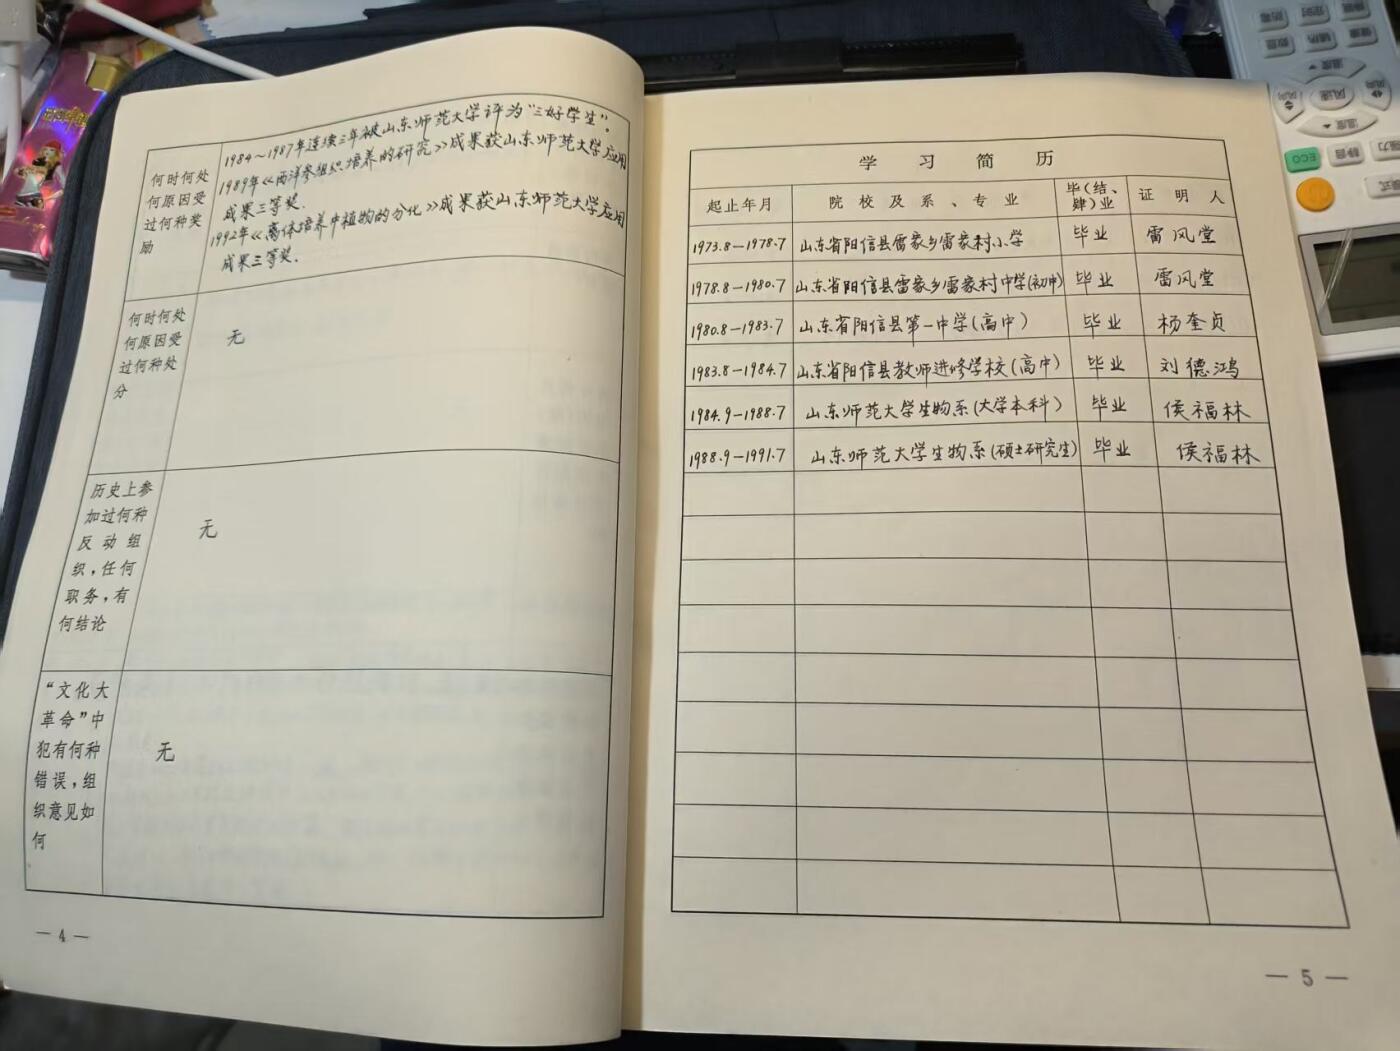 何时何处
何原因受
过何种奖
励
1984～1987年连续三年被山东师范大学评为“三好学生”。
1989年《西洋参组织培养的研究》成果获山东师范大学应用
成果三等奖.
1992年《离体培养中植物的分化》成果获山东师范大学应用
成果三等奖.
何时何处
何原因受
过何种处
分
无
历史上参
加过何种
反动组
织,任何
职务,有
何结论
无
“文化大
革命”中
犯有何种
错误,组
织意见如
何
无
— 4 —
学习简历
起止年月 院校及系、专业 毕(结、肄)业 证明人
1973.8—1978.7 山东省阳信县雷家乡雷家村小学 毕业 雷风堂
1978.8—1980.7 山东省阳信县雷家乡雷家村中学(初中) 毕业 雷风堂
1980.8—1983.7 山东省阳信县第一中学(高中) 毕业 杨奎贞
1983.8—1984.7 山东省阳信县教师进修学校(高中) 毕业 刘德鸿
1984.9—1988.7 山东师范大学生物系(大学本科) 毕业 侯福林
1988.9—1991.7 山东师范大学生物系(硕士研究生) 毕业 侯福林
— 5 —
ECO
静音
强力
模式
风速
温度
温度
风向
风向
健康
辅热
数显
定时
防霉